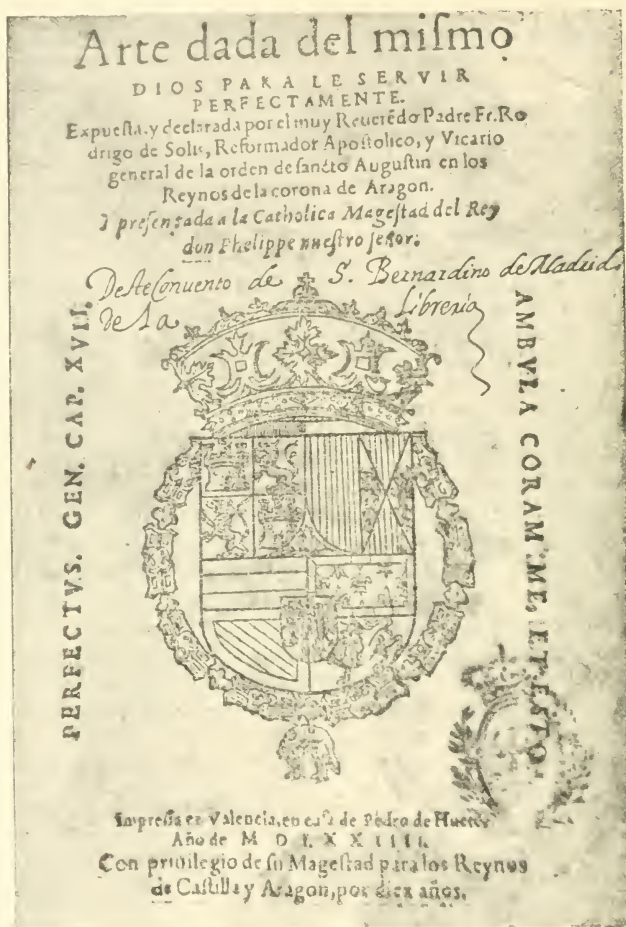 Arte dada del miſmo
DIOS PARA LE SERVIR
PERFECTAMENTE.
Expueſta, y declarada por el muy Reuerēdo Padre Fr. Ro
drigo de Solis, Reformador Apoſtolico, y Vicario
general de la orden de ſancto Auguſtin en los
Reynos de la corona de Aragon.
y preſentada a la Catholica Mageſtad del Rey
don Phelippe nueſtro ſeñor.
Deſte Convento de S. Bernardino de Madrid.
De la Libreria
AMBVLA CORAM ME, ET ESTO.
PERFECTVS. GEN. CAP. XVII.
Impreſſa en Valencia, en caſa de Pedro de Huete
Año de M D LXXIIII.
Con priuilegio de ſu Mageſtad para los Reynos
de Caſtilla y Aragon, por diez años.